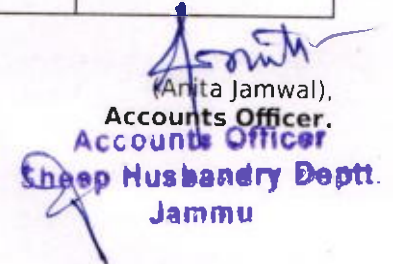 (Anita Jamwal),
Accounts Officer.
Accounts Officer
Sheep Husbandry Deptt.
Jammu